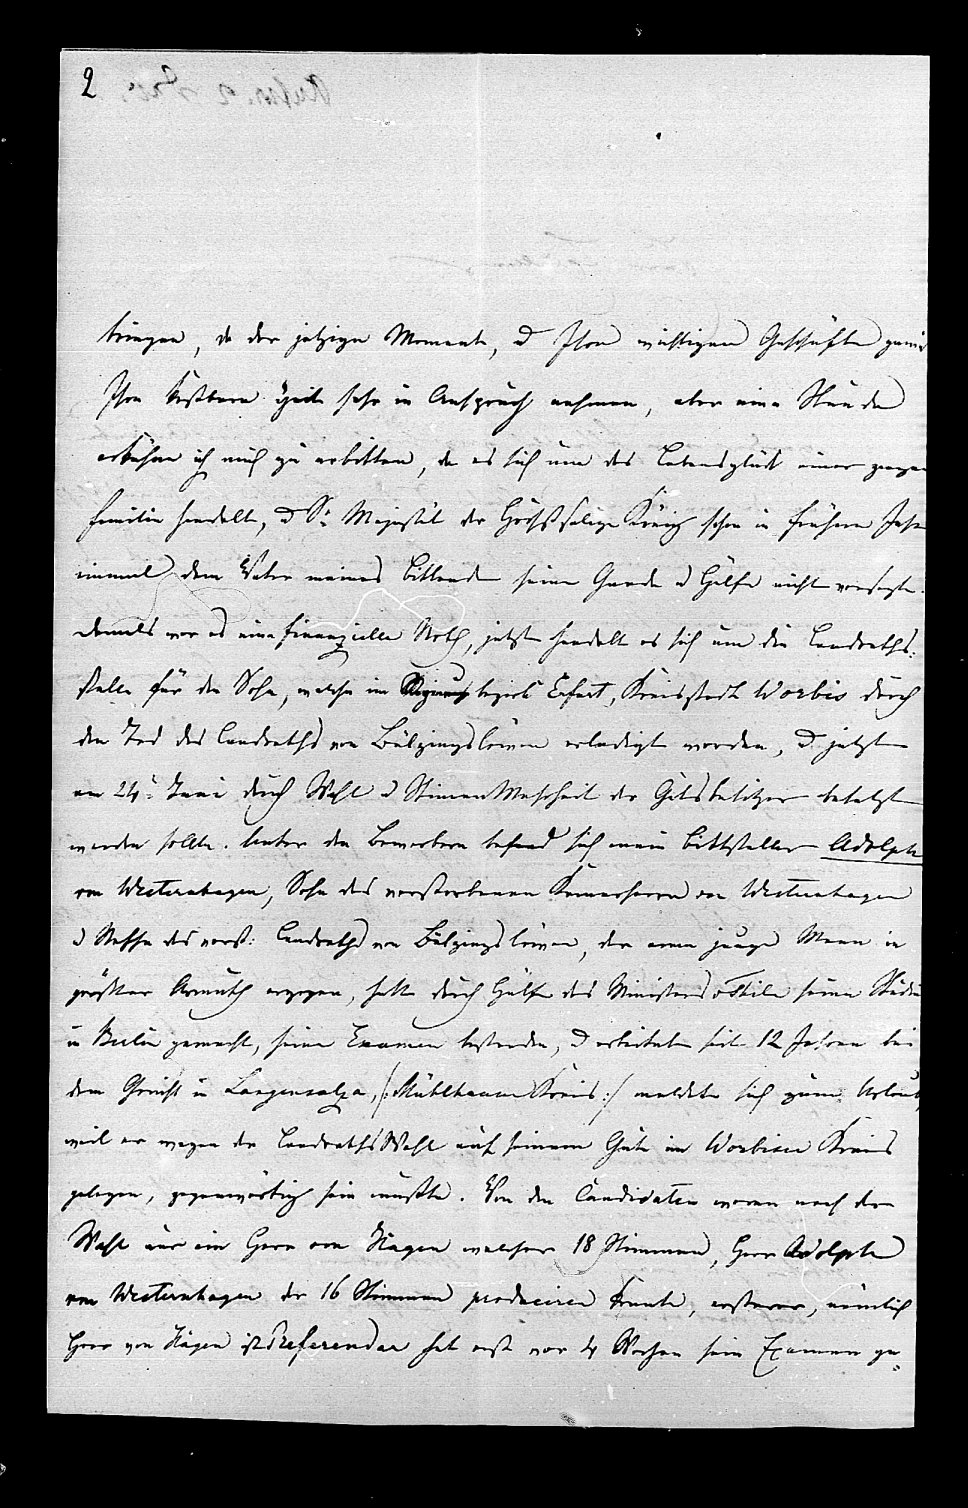 2
bringen, da der jetzige Moment, d Ihre wichtigen Geschäfte gewiß
Ihre kostbare Zeit sehr in Anspruch nehmen, aber eine Stunde
erkühne ich mich zu erbitten, da es sich um das Lebensglück einer ganzen
Familie handelt, d Sr. Majestät der Höchstselige König schon in frühern Jahren
einmal dem Vater meines Bittenden seine Gnade d Hülfe nicht versagte.
damals war es eine finanzielle Noth, jetzt handelt es sich um die Landraths-
stelle für den Sohn, welche im Regierungsbezirk Erfurt, Kreisstadt Worbis durch
den Tod des Landraths von Bültzingslöwen erledigt worden, d jetzt
am 24. Juni durch Wahl d Stimmen Mehrheit der Gutsbesitzer besetzt
werden sollte. Unter den Bewerbern befand sich mein Bittsteller Adolph
von Westernhagen, Sohn des verstorbenen Kammerherrn von Westernhagen
d Neffe des verst: Landraths von Bültzingslöwen, der arme junge Mann in
größter Armuth erzogen, hatte durch Hülfe des Ministers v Thile seine Studien
in Berlin gemacht, seine Examen bestanden, d arbeitete seit 12 Jahren bei
dem Gericht in Langensalza, /: Mühlhauser Kreis :/ meldete sich zum Urlaub,
weil er wegen der Landraths Wahl auf seinem Gute im Worbiser Kreis
gelegen, gegenwärtig sein mußte. Von den Candidaten waren nach der
Wahl nur ein Herr von Hagen welcher 18 Stimmen, Herr Adolph
von Westernhagen der 16 Stimmen produciren konnte, ersterer, nämlich
Herr von Hagen ist Referendar hat erst vor 4 Wochen sein Examen ge-